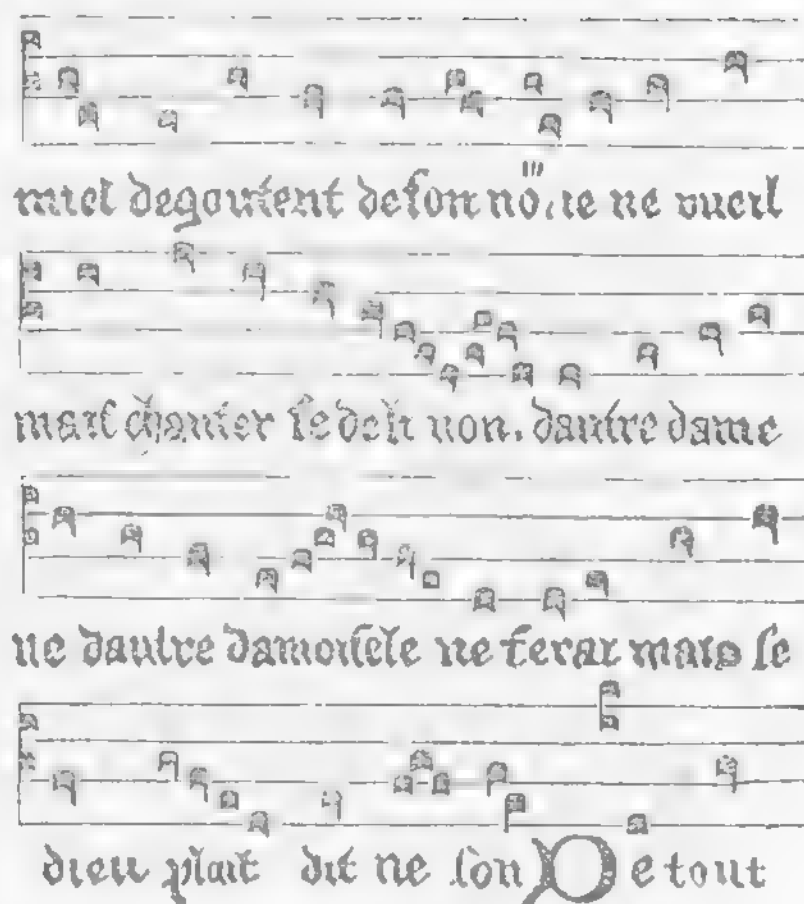 miel degoutent de son no, ie ne vueil
mais chanter se de li non. dautre dame
ne dautre damoisele ne ferai mais se
dieu plait dit ne son De tout